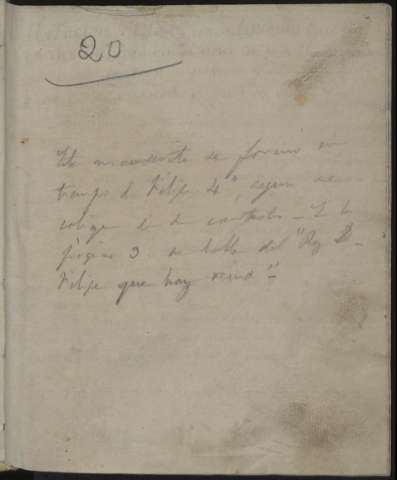 20
Este manuscrito se formó en
tiempo de Felipe 4º, segun se
colige de su contexto - En la
página 3 se habla del "Rey D.
Felipe que hoy reina" -